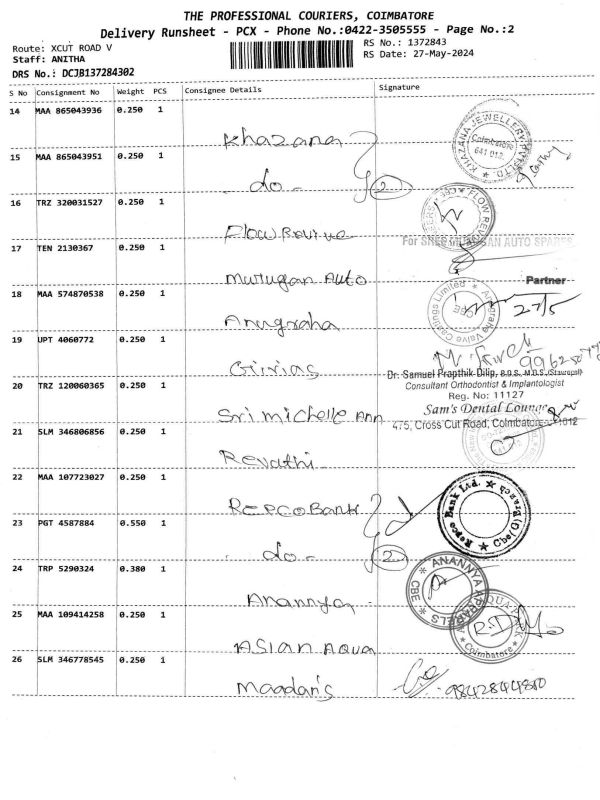 THE PROFESSIONAL COURIERS, COIMBATORE
Delivery Runsheet - PCX - Phone No.:0422-3505555 - Page No.:2
Route: XCUT ROAD V
RS No.: 1372843
Staff: ANITHA
RS Date: 27-May-2024
DRS No.: DCJB137284302
S No Consignment No Weight PCS Consignee Details Signature
14 MAA 865043936 0.250 1
Khazana
KHAZANA JEWELLERY PVT LTD.
Coimbatore
641 012.
15 MAA 865043951 0.250 1
do - 2
16 TRZ 320031527 0.250 1
Flow Revive
FLOW REV
For SHREE MURUGAN AUTO SPARES
17 TEN 2130367 0.250 1
Murugan Auto
Partner
18 MAA 574870538 0.250 1
Anugraha
Anugraha Valve Castings Limited
CBE
27/5
19 UPT 4060772 0.250 1
Dr. Samuel Prapthik Dilip, B.D.S., M.D.S.,
Consultant Orthodontist & Implantologist
20 TRZ 120060365 0.250 1
Reg. No: 11127
Sri michelle Ann
Sam's Dental Lounge
475, Cross Cut Road, Coimbatore
21 SLM 346806856 0.250 1
Revathi
22 MAA 107723027 0.250 1
Repco Bank
Repco Bank Ltd.
Cbe(G)Branch
23 PGT 4587884 0.550 1
do - 2
24 TRP 5290324 0.380 1
Anannya
ANANNYA APPARELS
CBE
25 MAA 109414258 0.250 1
ASIAN AQUA
Coimbatore
26 SLM 346778545 0.250 1
Maadan's
9842844800